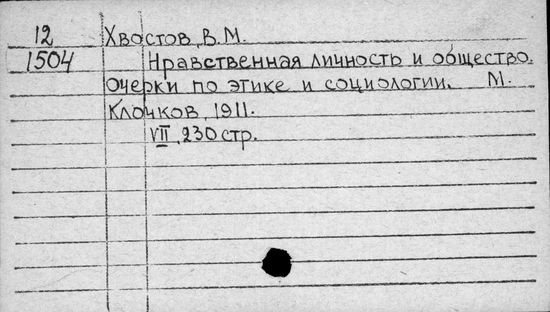 12 Хвостов, В.М.
1504 Нравственная личность и общество.
Очерки по этике и социологии. М.
Клочков, 1911.
VII, 230 стр.